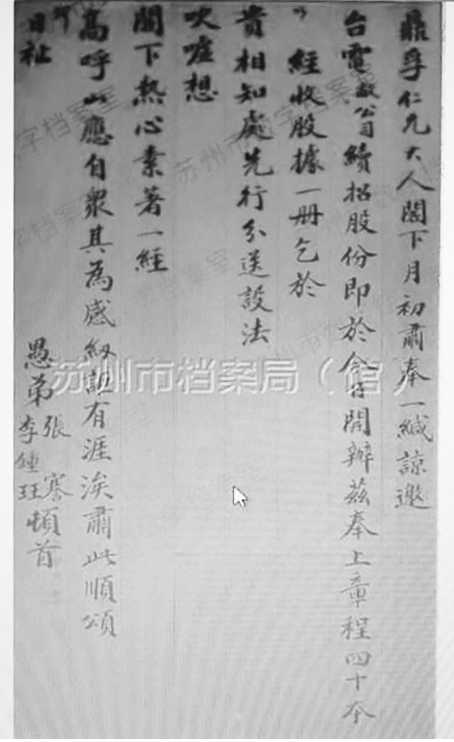 鼎孚仁兄大人閣下月初肅奉一緘諒邀
台電敝公司續招股份即於今日開辦茲奉上章程四十本
經收股據一冊乞於
貴相知處先行分送設法
吹噓想
閣下熱心素著一經
高呼山應自眾其為感紉詎有涯涘肅此順頌
祉
愚弟張謇李鍾珏頓首
苏州市档案局（馆）